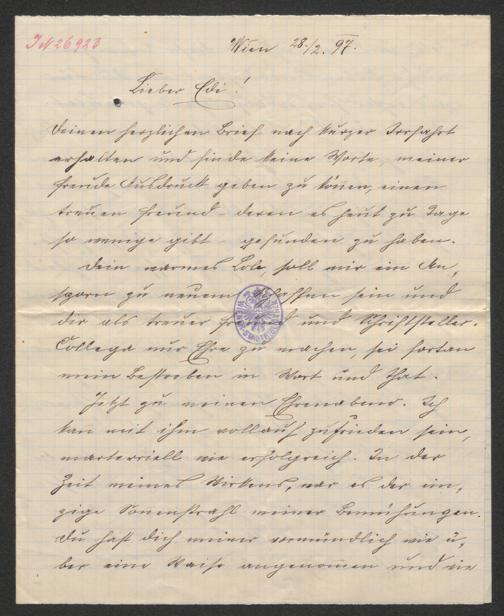 IN 26923
Wien 28./2. 97.
Lieber Edi!
Deinen herzlichen Brief nach kurzer Irrfahrt
erhalten und finde keine Worte, meiner
Freude Ausdruck geben zu können, einen
treuen Freund deren es heut zu Tage
so wenige gibt gefunden zu haben.
Dein warmes Lob, soll mir ein An¬
sporn zu neuem Schaffen sein und
dir als treuer Freund und Schriftsteller¬
Collega nur Ehre zu machen, sei fortan
mein Bestreben in Wort und That.
Jetzt zu meinen Ehrenabend. Ich
kan mit ihm vollauf zufrieden sein,
materiell wie erfolgreich. In der
Zeit meines Wirkens, war es der ein¬
zige Sonenstrahl meiner Bemühungen.
Du hast dich meiner vormündlich wie ü¬
ber eine Waise angenommen und wie